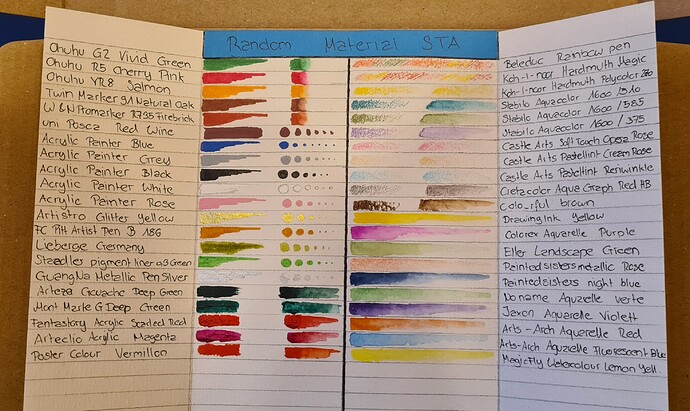 Random Material STA
Ohuhu G2 Vivid Green
Ohuhu R5 Cherry Pink
Ohuhu YR8 Salmon
Twin Marker 91 Natural Oak
W&N Promarker R735 Firebrick
uni Posca Red Wine
Acrylic Painter Blue
Acrylic Painter Grey
Acrylic Painter Black
Acrylic Painter White
Acrylic Painter Rose
Artistro Glitter Yellow
FC Pitt Artist Pen B 186
Lieberge Germany
Staedler pigment liner 09 Green
GuangNa Metallic Pen Silver
Arteza Gouache Deep Green
Mont Marte G Deep Green
Fantastory Acrylic Scarled Red
Arteclio Acrylic Magenta
Poster Colour Vermillon
Beleduc Rainbow pen
Koh-I-noor Hardmuth Magic
Koh-I-noor Hardmuth Polycolor
Stabilo Aquacolor 1600 / 310
Stabilo Aquacolor 1600 / 585
Stabilo Aquacolor 1600 / 375
Castle Arts Soft Touch Opera Rose
Castle Arts Pastellint Cream Rose
Castle Arts Pastellint Periwinkle
Cretacolor Aqua Graph Red HB
colo_rful brown
Drawing Ink Yellow
Colorex Aquarelle Purple
Eller Landscape Green
Paintedsisters metallic Rose
Paintedsisters night blue
No name Aquarelle verte
Jaxon Aquarelle Violett
Arts-Arch Aquarelle Red
Arts-Arch Aquarelle Fluorescent Blue
MagicFly Watercolour Lemon Yell.